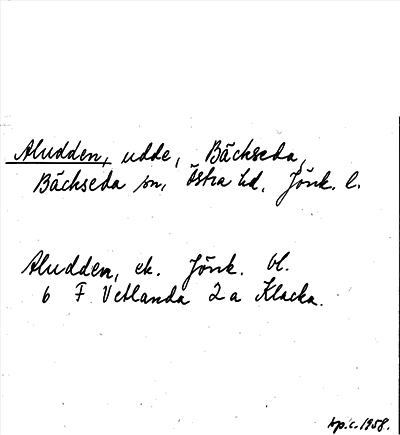 Aludden, udde, Bäckseda,
Bäckseda sn, Östra hd, Jönk. l.
Aludden, ek. Jönk. bl.
6 F Vetlanda 2 a Klacka.
op.c. 1958.